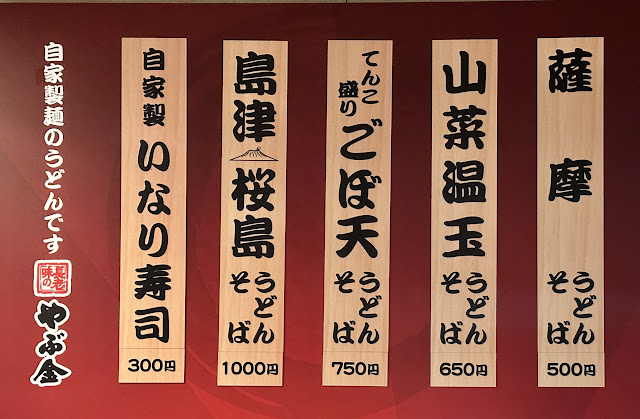 薩摩
うどん
そば
500円
山菜温玉
うどん
そば
650円
てんこ
盛り
ごぼ天
うどん
そば
750円
島津
桜島
うどん
そば
1000円
自家製
いなり寿司
300円
自家製麺のうどんです
長老
味の
やぶ金